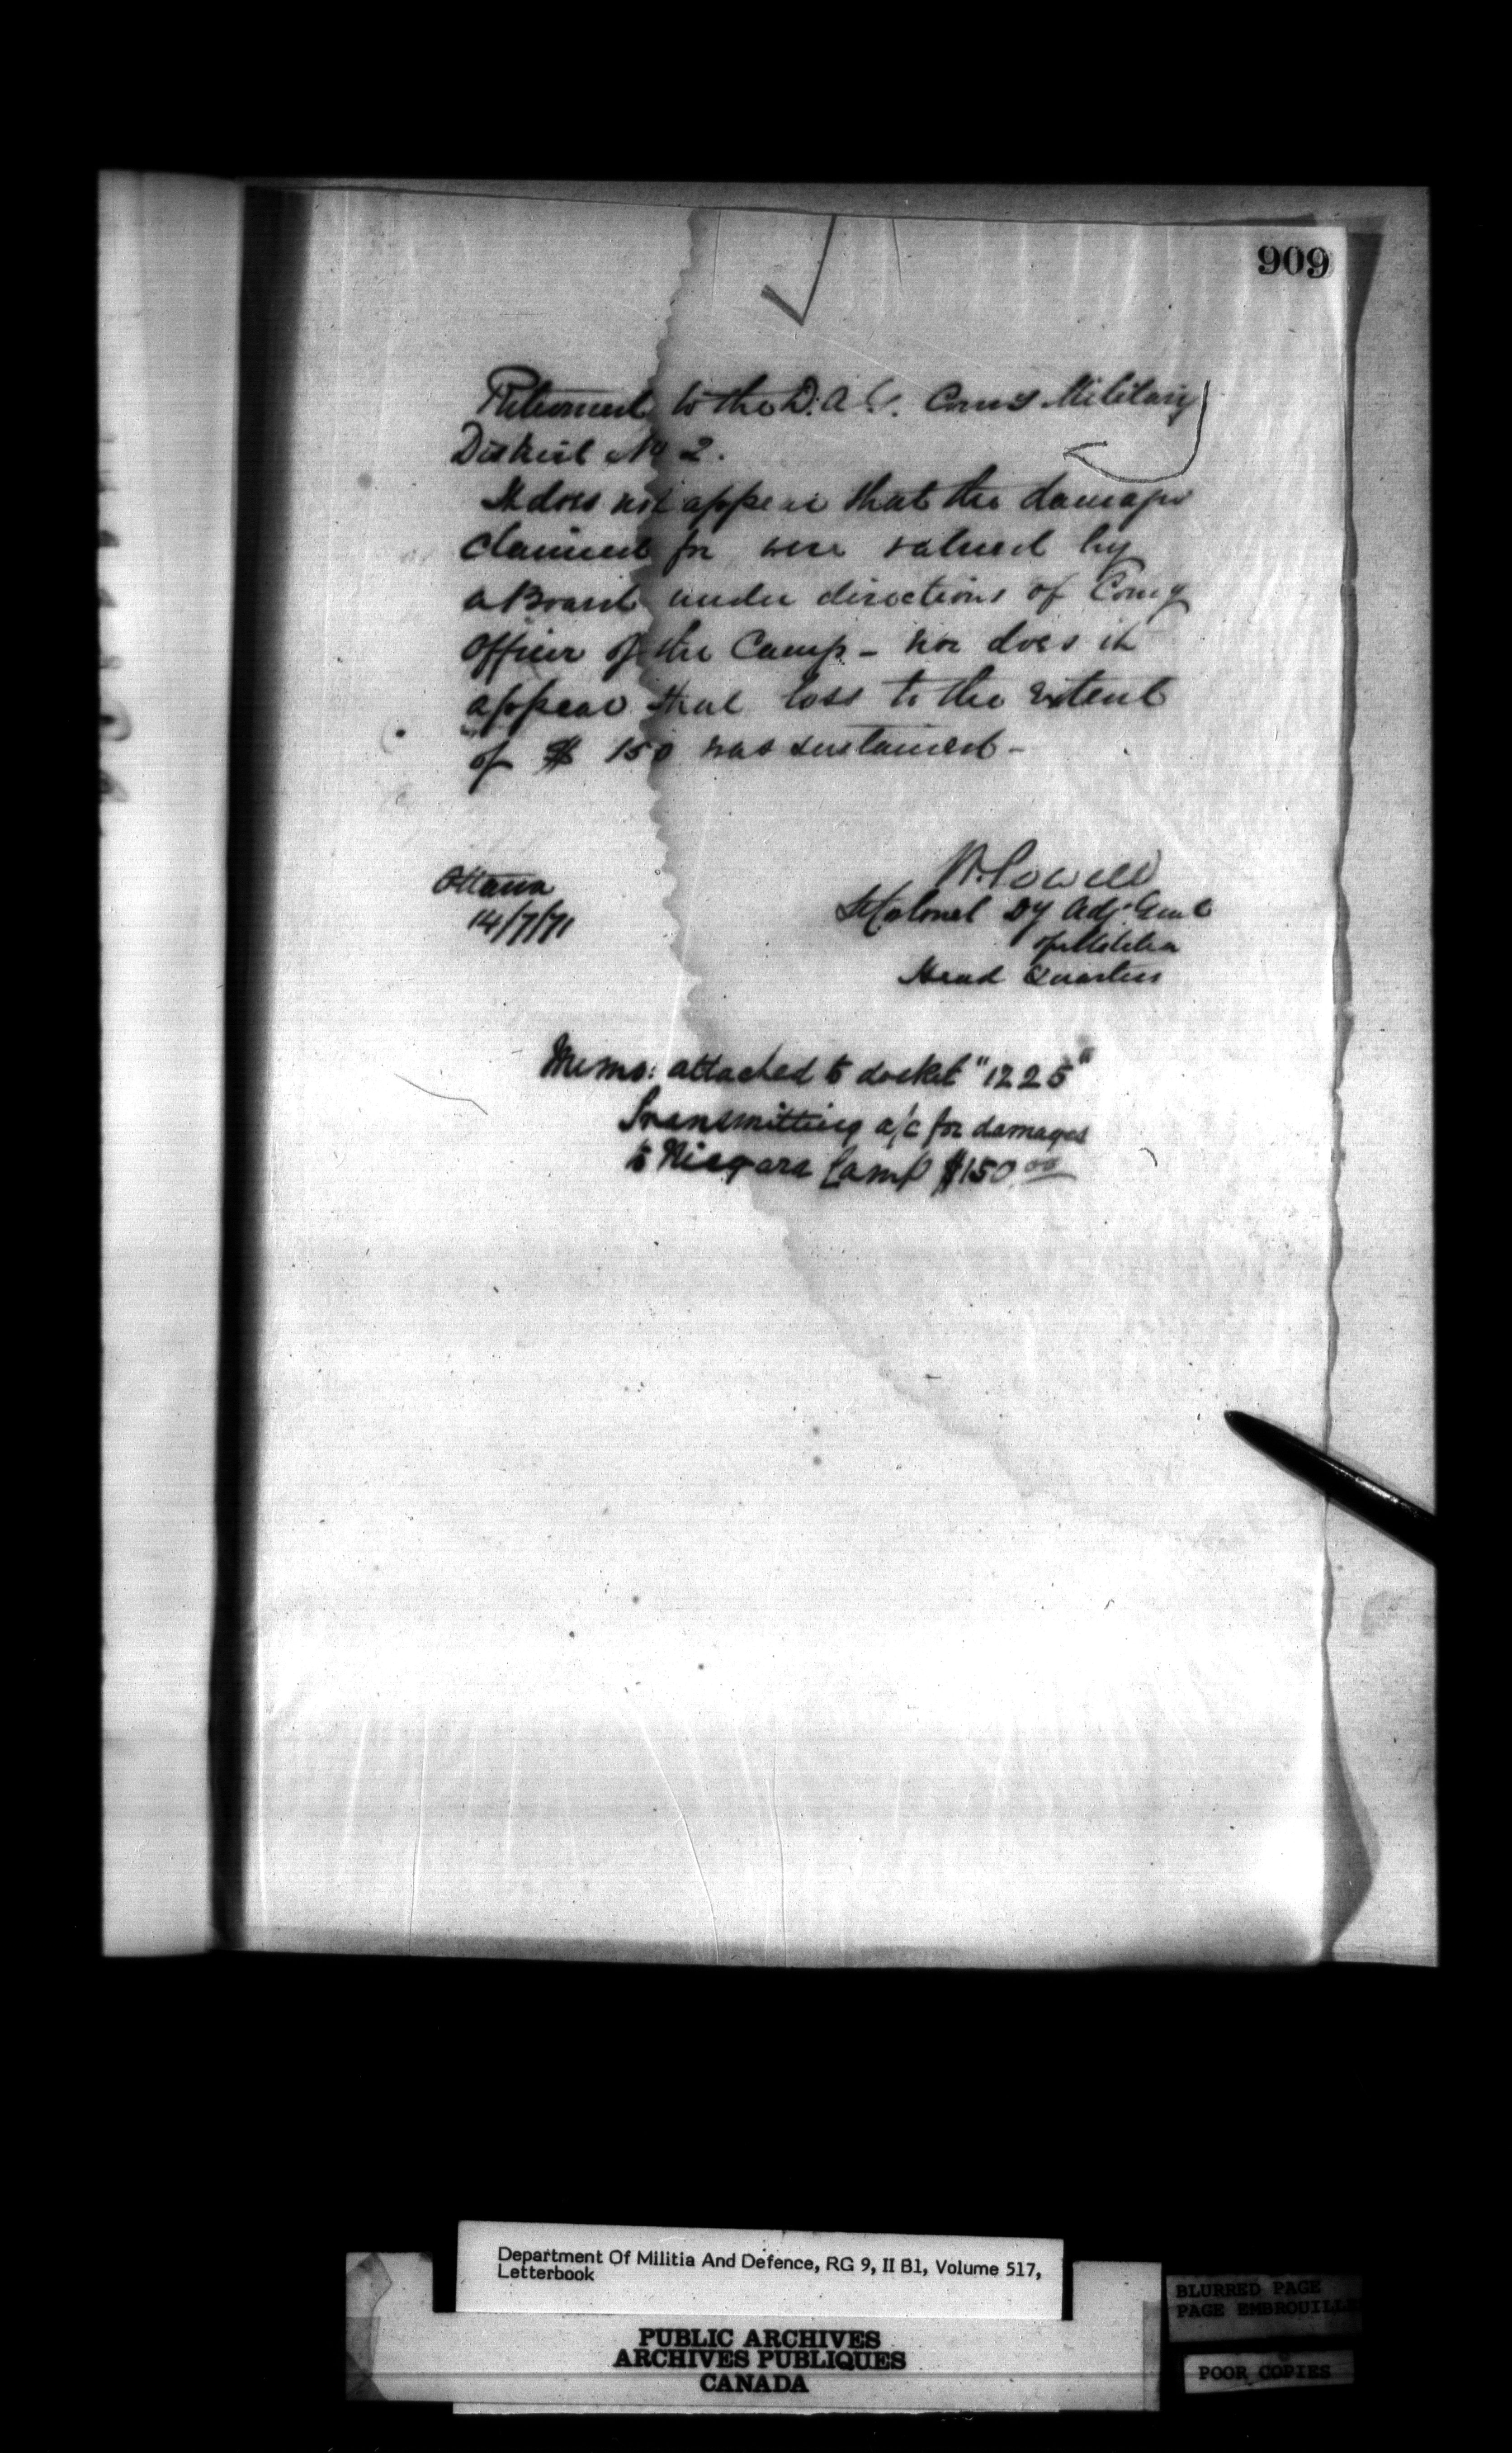 909
Returned to the D. A. G. Comg Military
District No 2.
It does not appear that the damages
claimed for were valued by
a Board under directions of Comg
Officer of the Camp - nor does it
appear that loss to the extent
of $ 150 was sustained -
W. Powell
Ottawa
Lt Colonel Dy Adjt Genl
14/7/71
of Militia
Head Quarters
Memo: attached to docket "1225"
Transmitting a/c for damages
to Niagara Camp $150.00
Department Of Militia And Defence, RG 9, II B1, Volume 517,
Letterbook
PUBLIC ARCHIVES
ARCHIVES PUBLIQUES
CANADA
BLURRED PAGE
PAGE EMBROUILLE
POOR COPIES